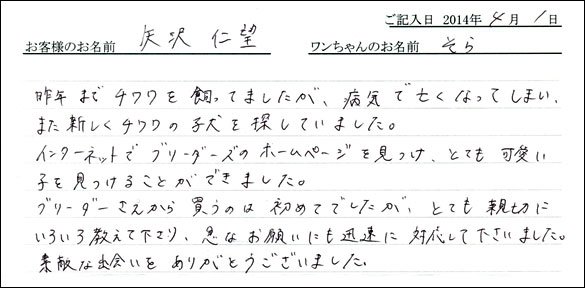 ご記入日 2014年 4月 1日
お客様のお名前 矢沢 仁望 ワンちゃんのお名前 そら
昨年までチワワを飼ってましたが、病気で亡くなってしまい、
また新しくチワワの子犬を探していました。
インターネットでブリーダーズのホームページを見つけ、とても可愛い
子を見つけることができました。
ブリーダーさんから買うのは初めてでしたが、とても親切に
いろいろ教えて下さり、急なお願いにも迅速に対応して下さいました。
素敵な出会いをありがとうございました。